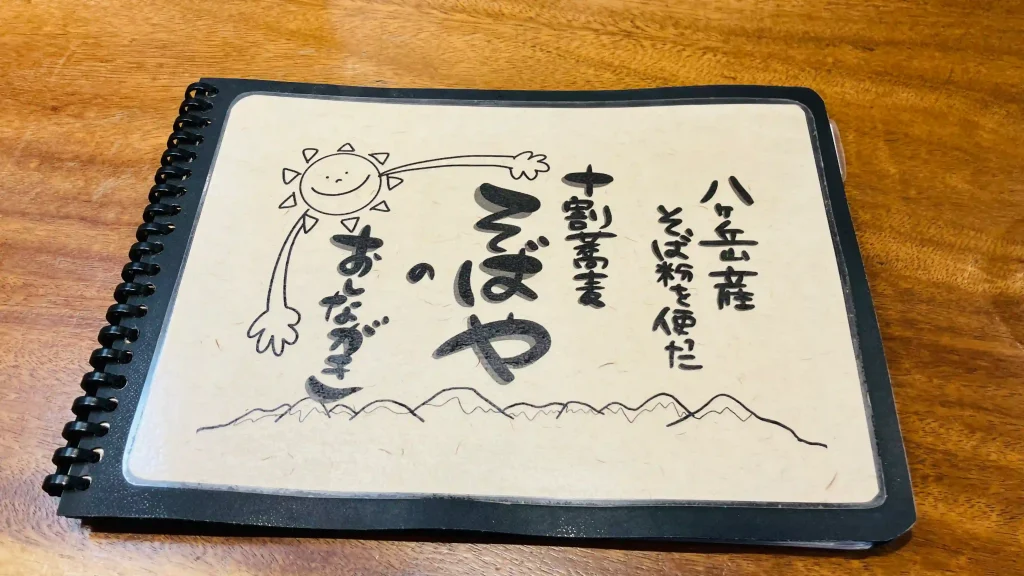 八ヶ岳産
そば粉を使った
十割蕎麦
そばや
の
おしながき